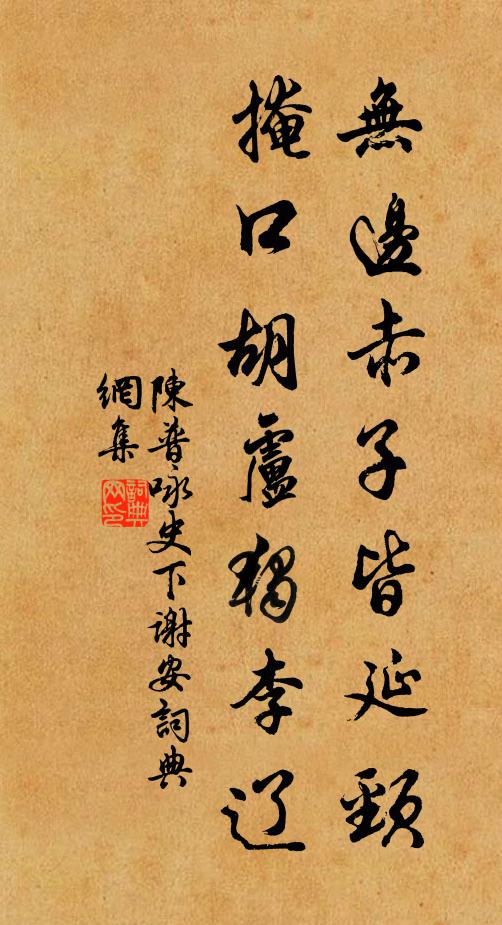 無邊赤子皆延頸
掩口胡盧獨李辽
陳普咏史下謝安詞典
網集
詞典
网印